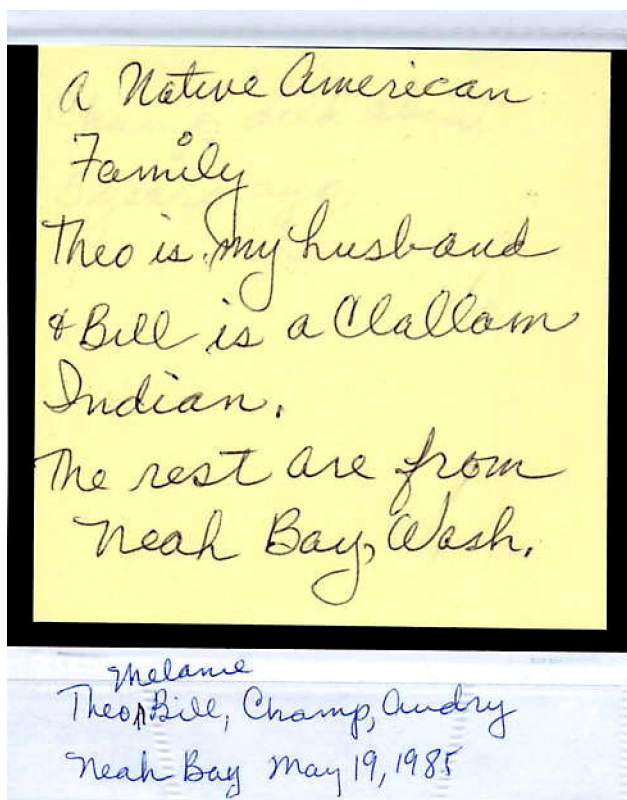 A Native American
Family
Theo is my husband
& Bill is a Clallam
Indian.
The rest are from
Neah Bay, Wash.
Melanie
Theo ^ Bill, Champ, Audry
Neah Bay May 19, 1985